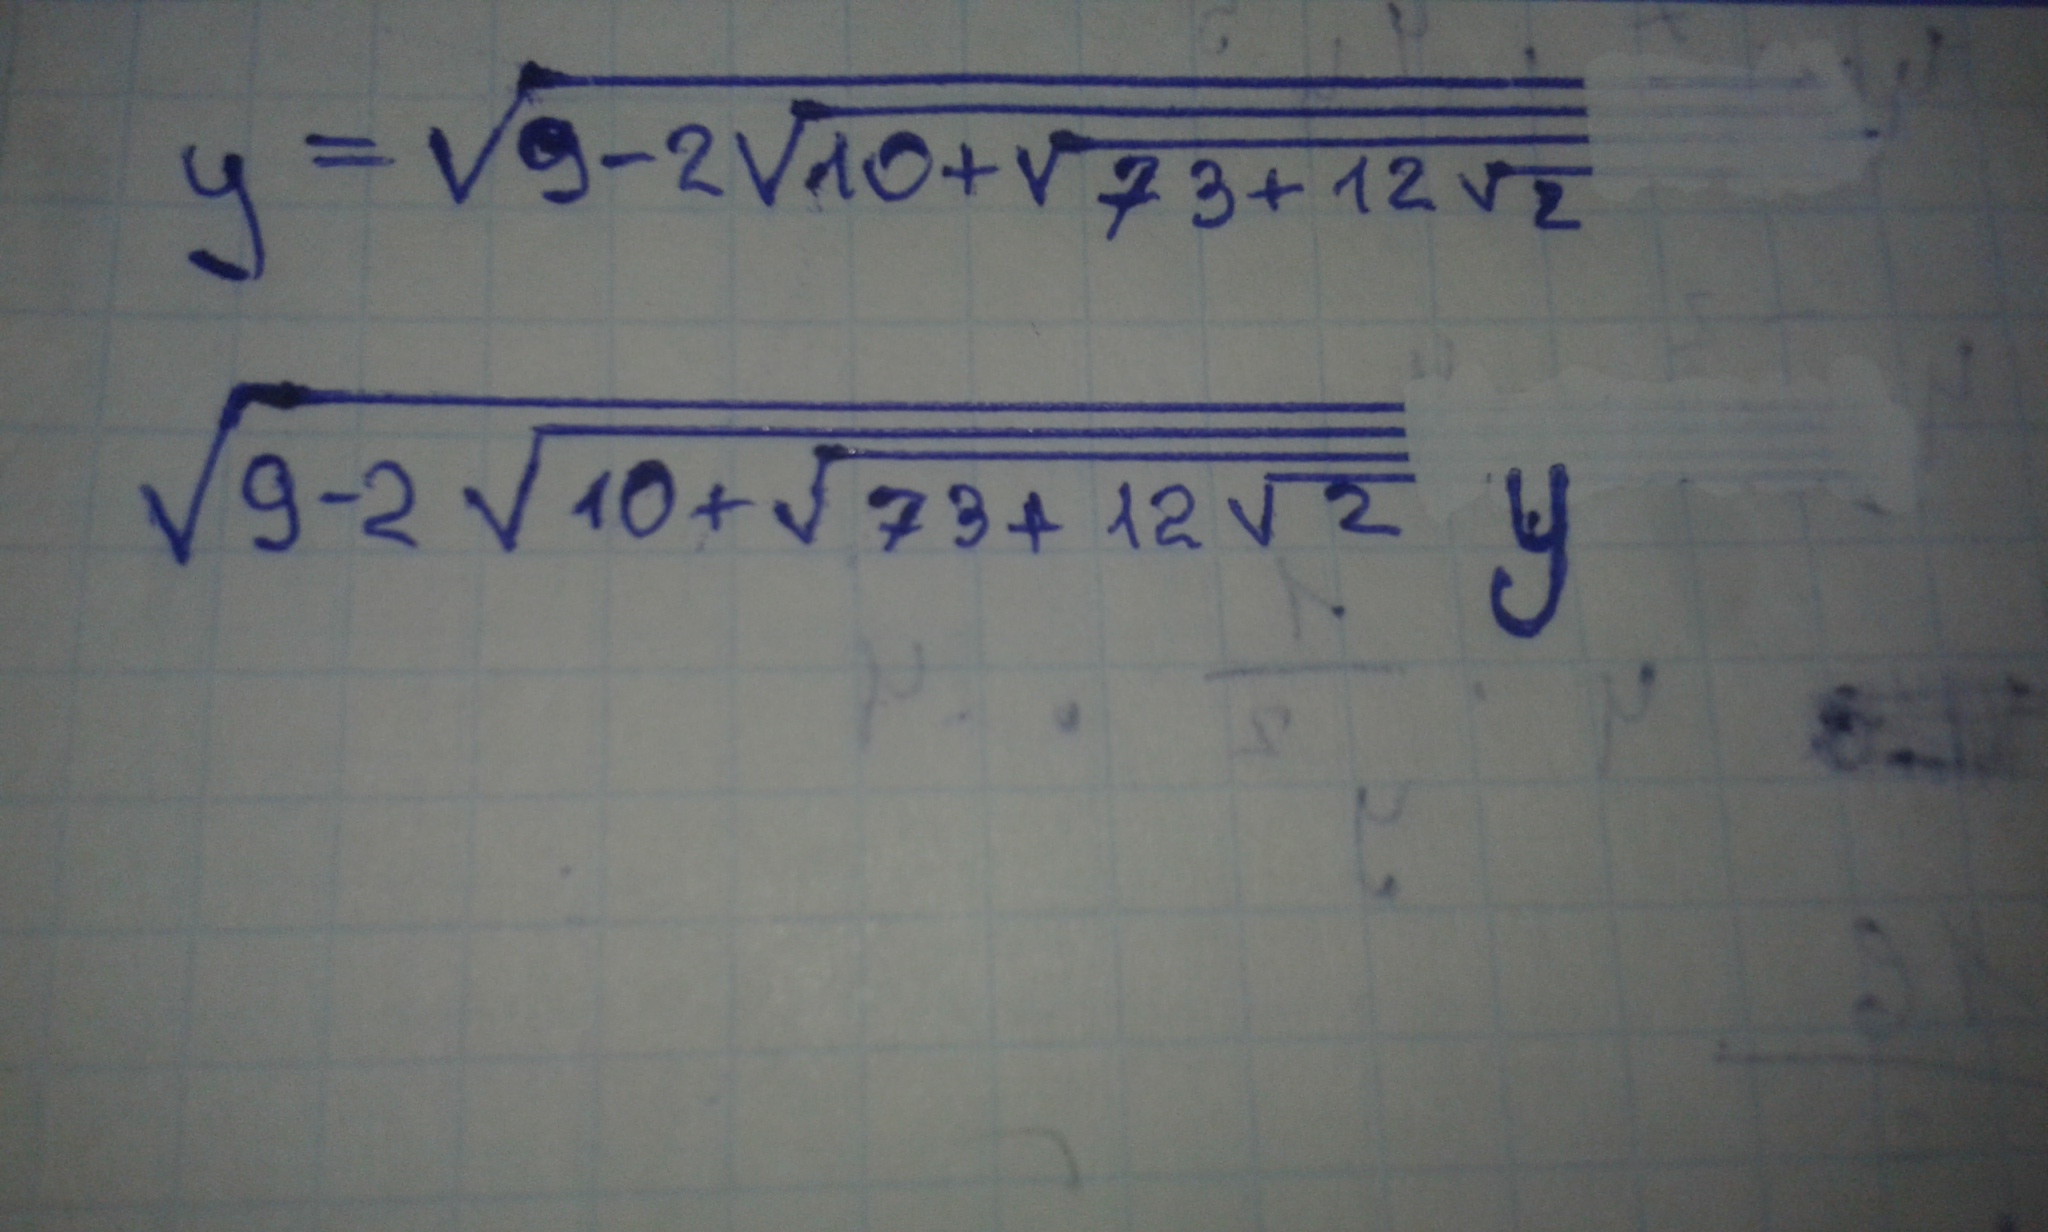 y = √(9-2√(10+√(73+12√2)))
√(9-2√(10+√(73+12√2))) y